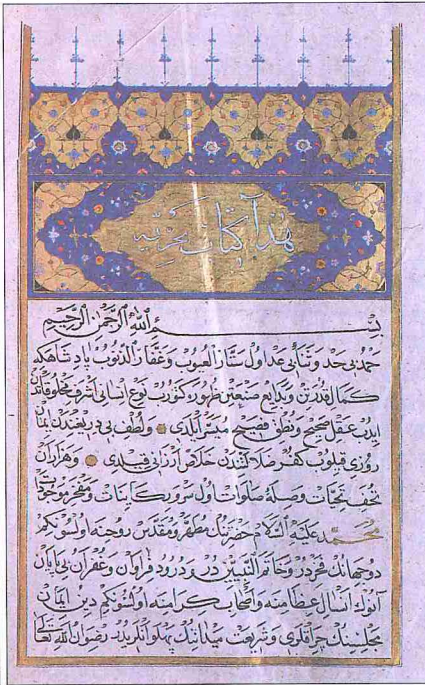 هذا كتاب بحريه
بسم الله الرحمن الرحيم
حمد بى حد وثناى بى عد اول ستار العيوب وغفار الذنوب پادشاهكه
كمال قدرتن وبدايع صنعتين ظهوره كتورب نوع انسانى اشرف مخلوقاتدن
ايدب عقل صحيح ونطق فصيح ميسر ايلدى ولطف بى دريغندن ايمان
روزى قيلوب كفر ضلالتندن خلاص ارزانى قيلدى وهزاران
تحف تحيات وصلۀ صلوات اول سرور كاينات ومفخر موجودات
محمد عليه السلام حضرتنك مطهر ومقدس روحنه اولسونكم
دو جهانك فخريدر وخاتم النبيين در ودرود فراوان وغفران بى پايان
آنوك آل عظامنه واصحاب كرامنه اولسونكم دين ايمان
مجلسينك چراقلرى وشريعت ميدانك پهلوانلريدر رضوان الله تعالى